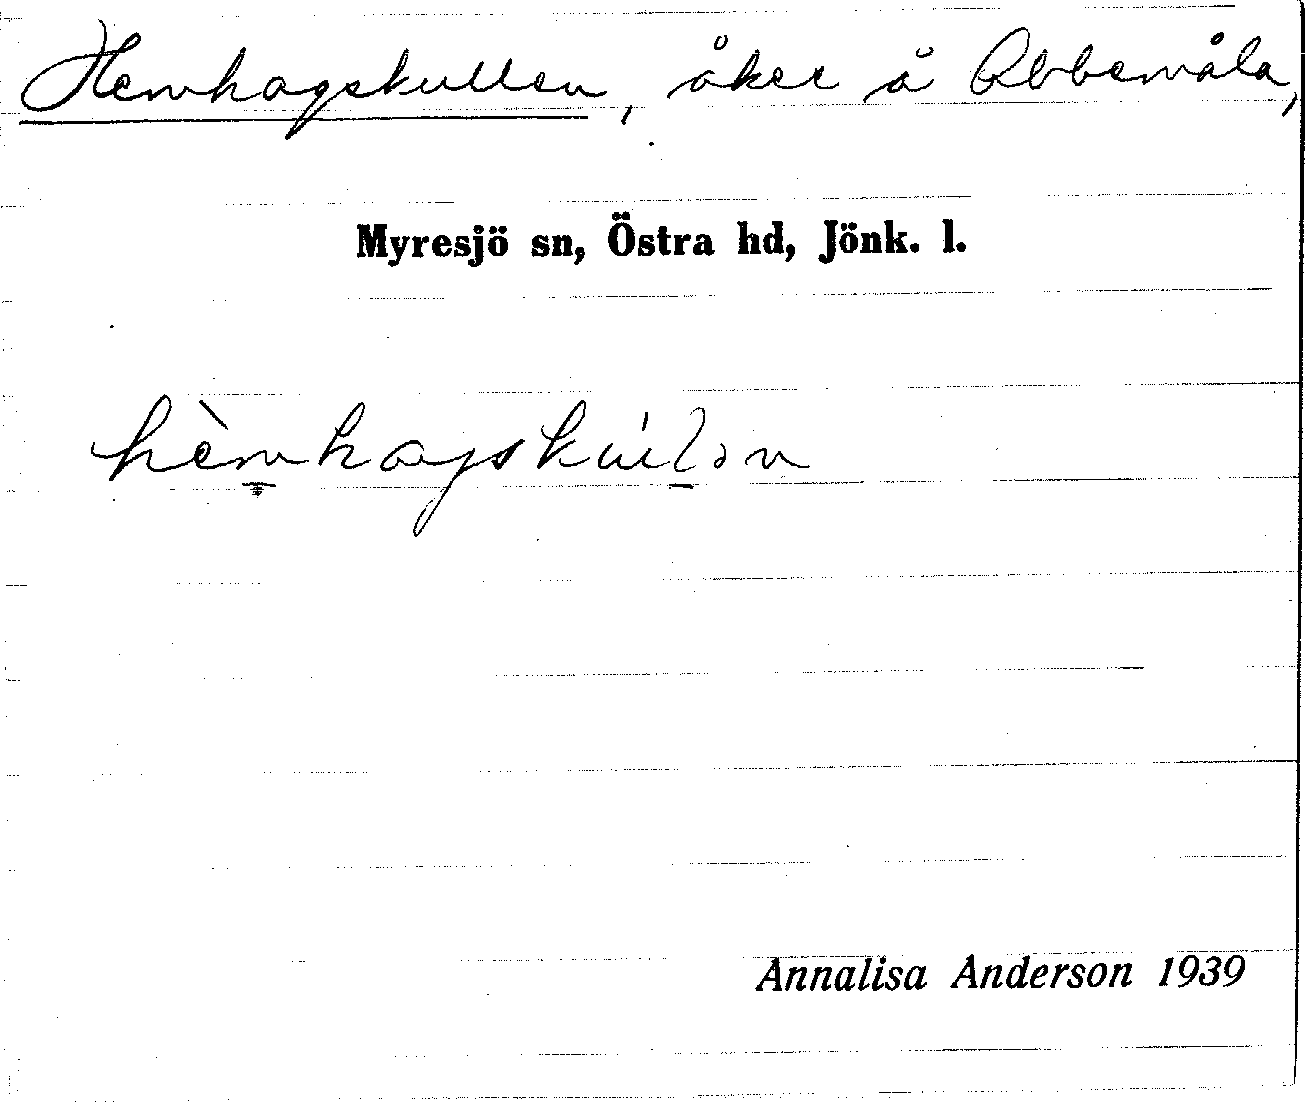 Hemhagskullen, åker å Abbemåla,
Myresjö sn, Östra hd, Jönk. l.
hèmhagskúlən
Annalisa Anderson 1939